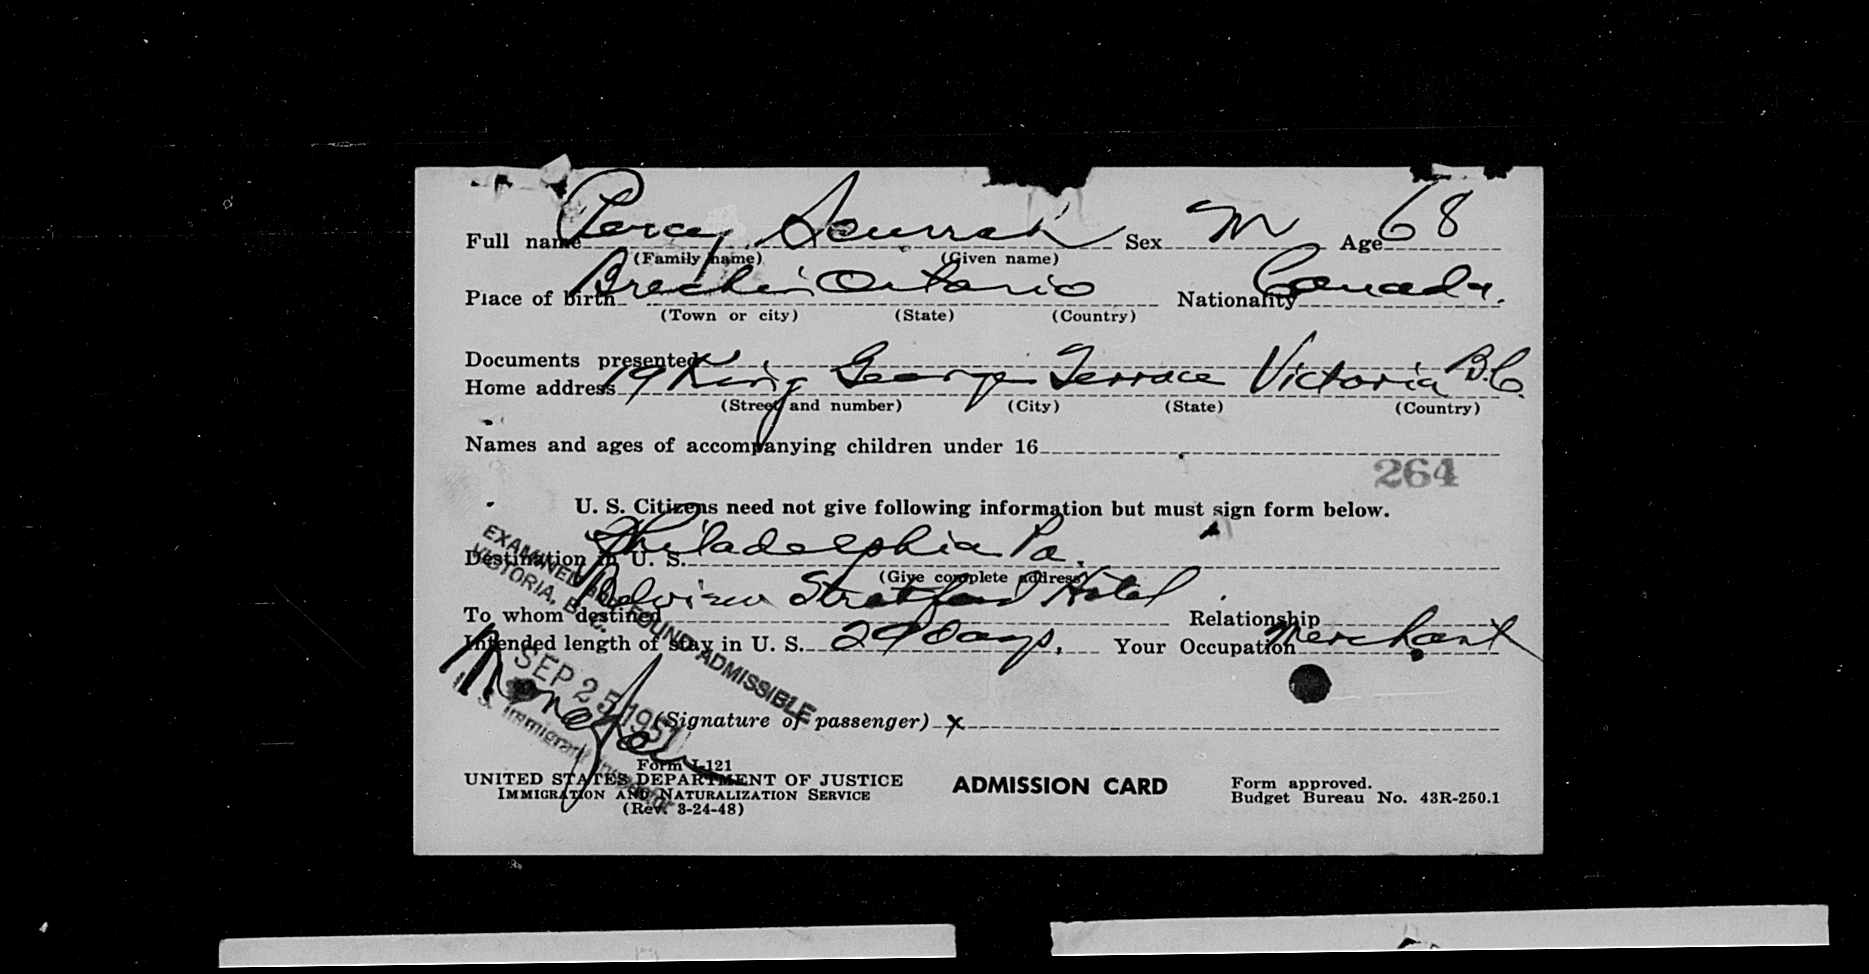 Full name Percy Scurrah Sex M Age 68
(Family name) (Given name)
Place of birth Brechin Ontario Nationality Canada.
(Town or city) (State) (Country)
Documents presented
Home address 19 King George Terrace Victoria B.C.
(Street and number) (City) (State) (Country)
Names and ages of accompanying children under 16
264
U. S. Citizens need not give following information but must sign form below.
Destination in U. S. Philadelphia Pa.
(Give complete address)
To whom destined Belview Stratford Hotel Relationship
Intended length of stay in U. S. 29 days. Your Occupation Merchant
EXAMINED AND FOUND ADMISSIBLE
VICTORIA, B. C.
SEP 25 1951
U. S. Immigrant Inspector
(Signature of passenger) x
Form I-121
UNITED STATES DEPARTMENT OF JUSTICE
IMMIGRATION AND NATURALIZATION SERVICE
(Rev. 3-24-48)
ADMISSION CARD
Form approved.
Budget Bureau No. 43R-250.1